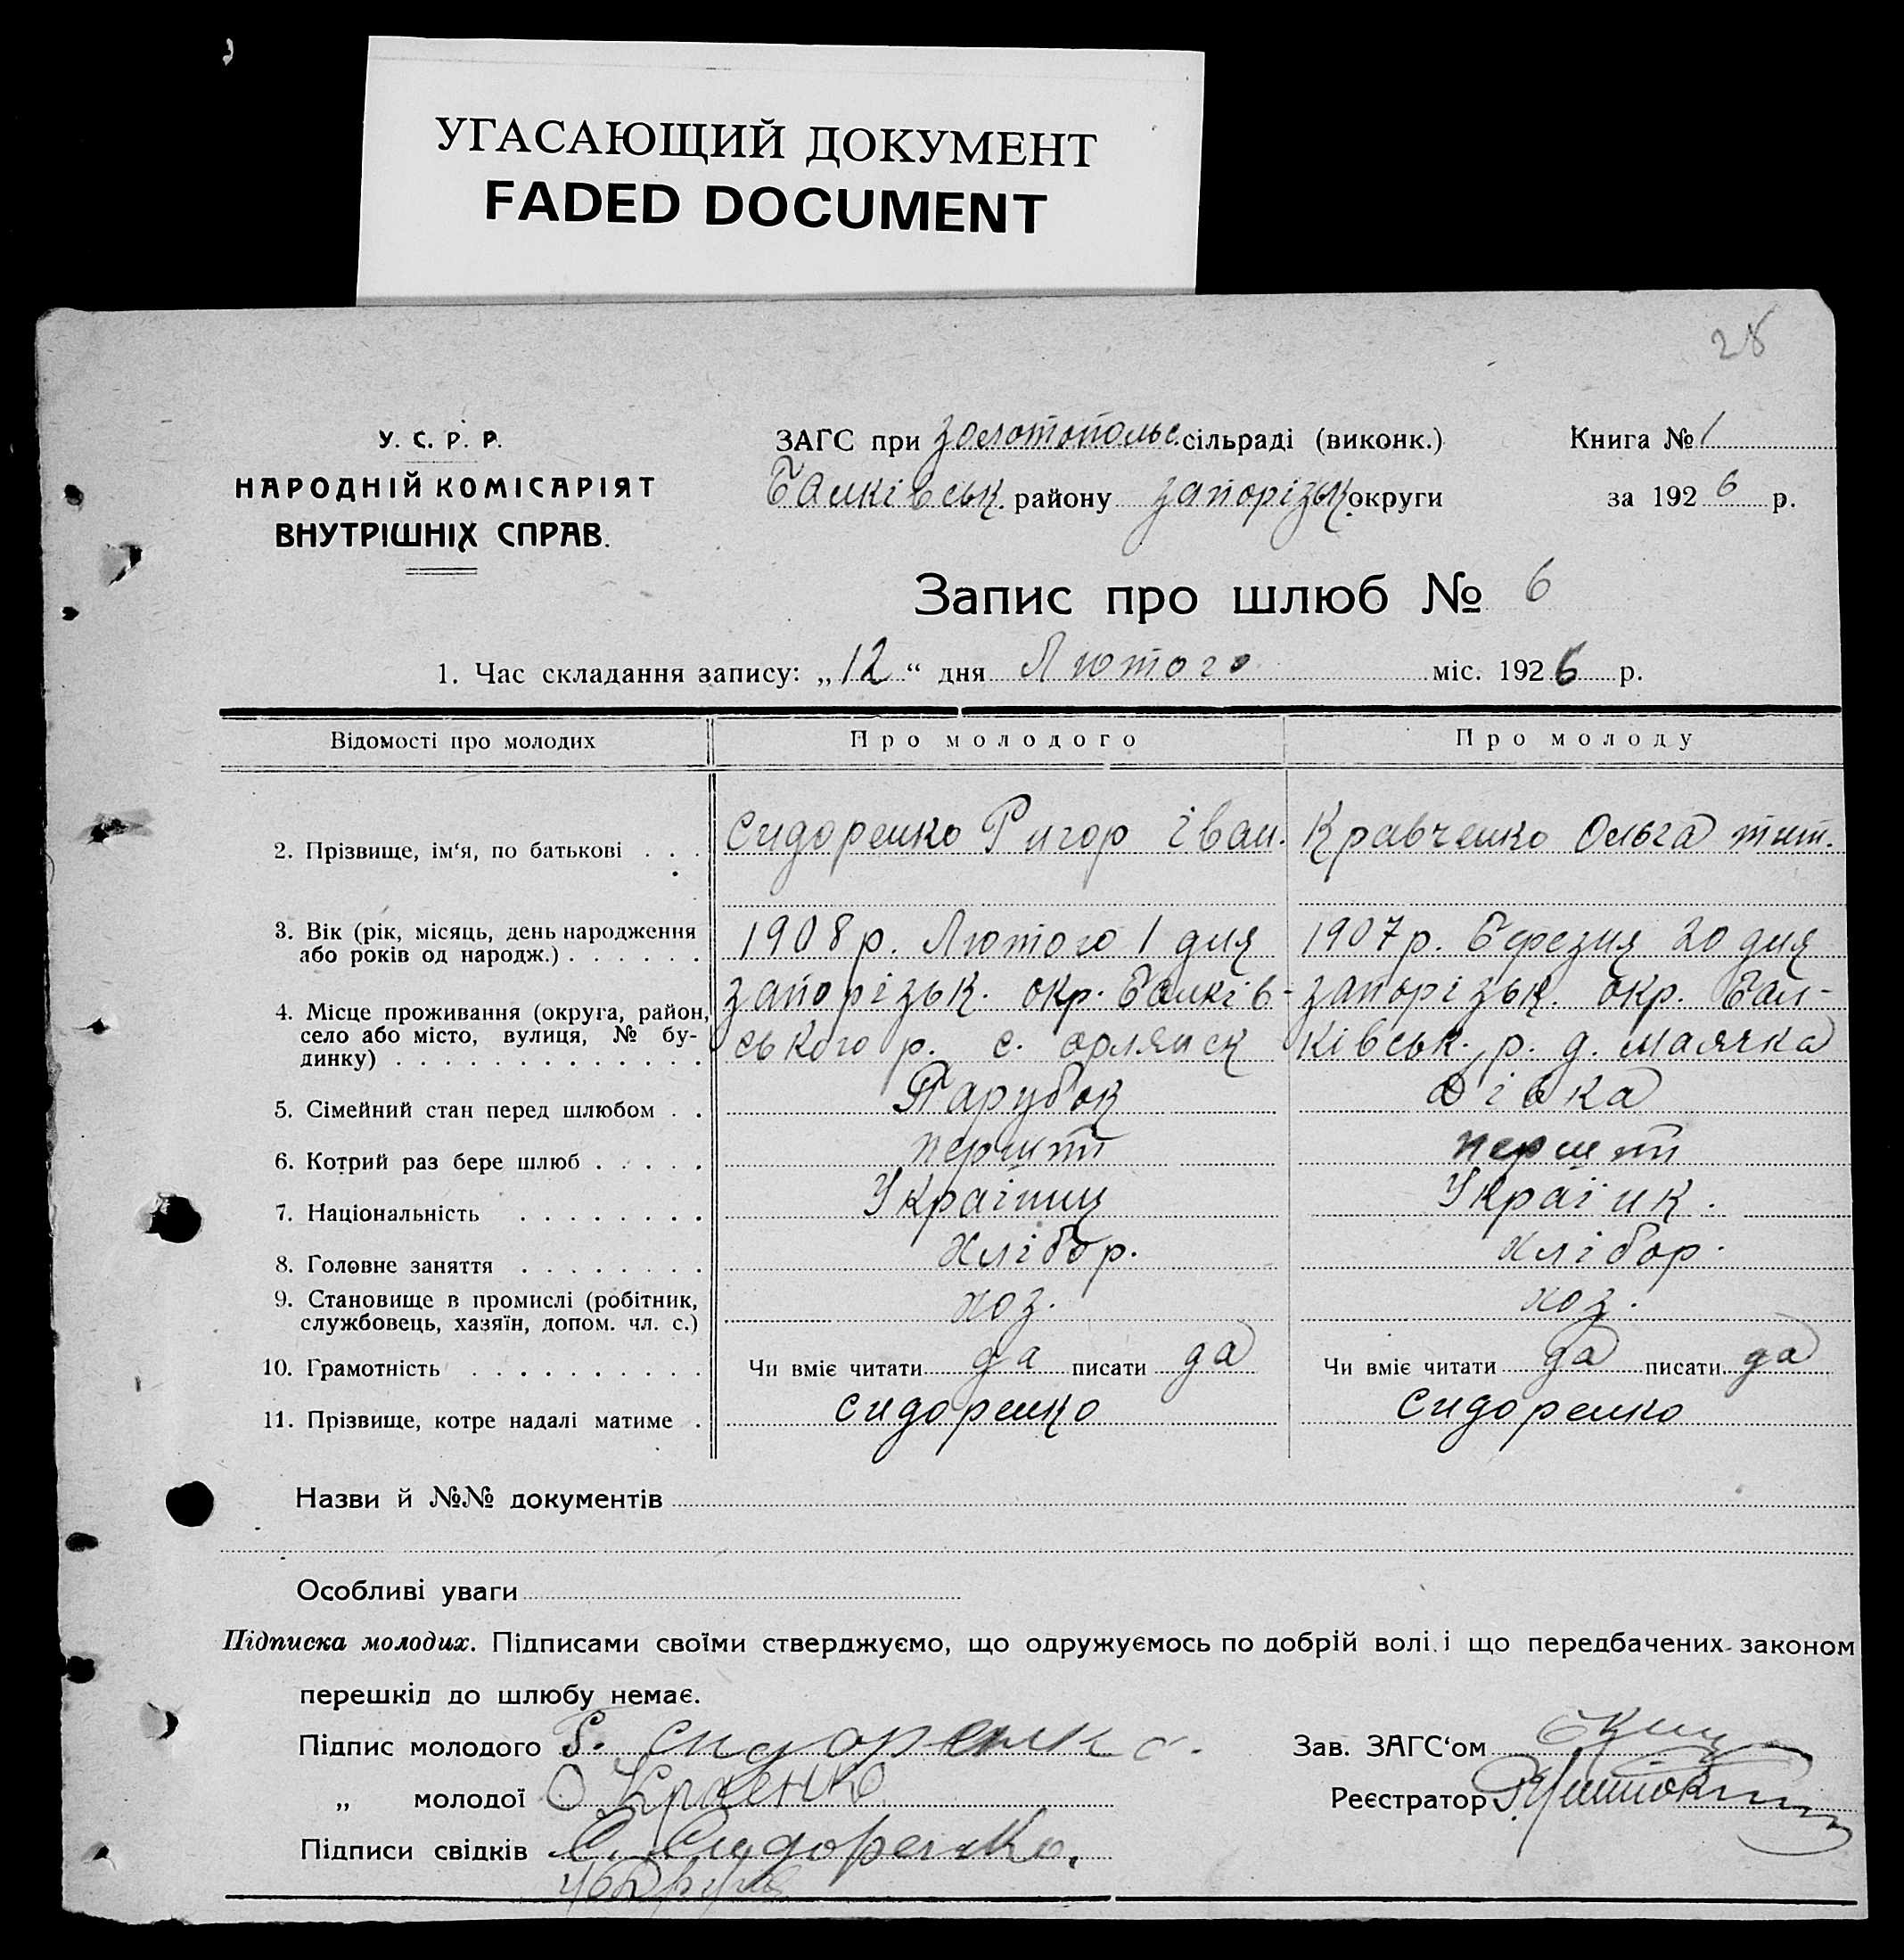 УГАСАЮЩИЙ ДОКУМЕНТ
FADED DOCUMENT
28
У. С. Р. Р.
НАРОДНІЙ КОМІСАРІЯТ
ВНУТРІШНІХ СПРАВ.
ЗАГС при Золотопольс. сільраді (виконк.)
Книга № 1
Балківськ. району Запорізьк. округи
за 1926 р.
Запис про шлюб № 6
1. Час складання запису: „12“ дня Лютого міс. 1926 р.
Відомості про молодих
Про молодого
Про молоду
2. Прізвище, ім‘я, по батькові . . .
Сидоренко Ригор Іван.
Кравченко Ольга тит.
3. Вік (рік, місяць, день народження
або років од народж.) . . . . . .
1908 р. Лютого 1 дня
1907 р. Березня 20 дня
4. Місце проживання (округа, район,
село або місто, вулиця, № бу-
динку) . . . . . . . . . . . . .
Запорізьк. окр. Балків-
ського р. с. орлянск
Запорізьк. окр. Бал-
ківськ. р. д. маячка
5. Сімейний стан перед шлюбом . .
Парубок
Дівка
6. Котрий раз бере шлюб . . . . .
перший
перший
7. Національність . . . . . . . .
Українц
Українк.
8. Головне заняття . . . . . . . .
Хлібор.
Хлібор.
9. Становище в промислі (робітник,
службовець, хазяїн, допом. чл. с.)
хоз.
хоз.
10. Грамотність . . . . . . . . . .
Чи вміє читати да писати да
Чи вміє читати да писати да
11. Прізвище, котре надалі матиме .
Сидоренко
Сидоренко
Назви й №№ документів
Особливі уваги
Підписка молодих. Підписами своїми стверджуємо, що одружуємось по добрій волі і що передбачених законом
перешкід до шлюбу немає.
Підпис молодого Г. Сидоренко.
Зав. ЗАГС‘ом
„ молодої О
Реєстратор
Підписи свідків С. Сидоренко.